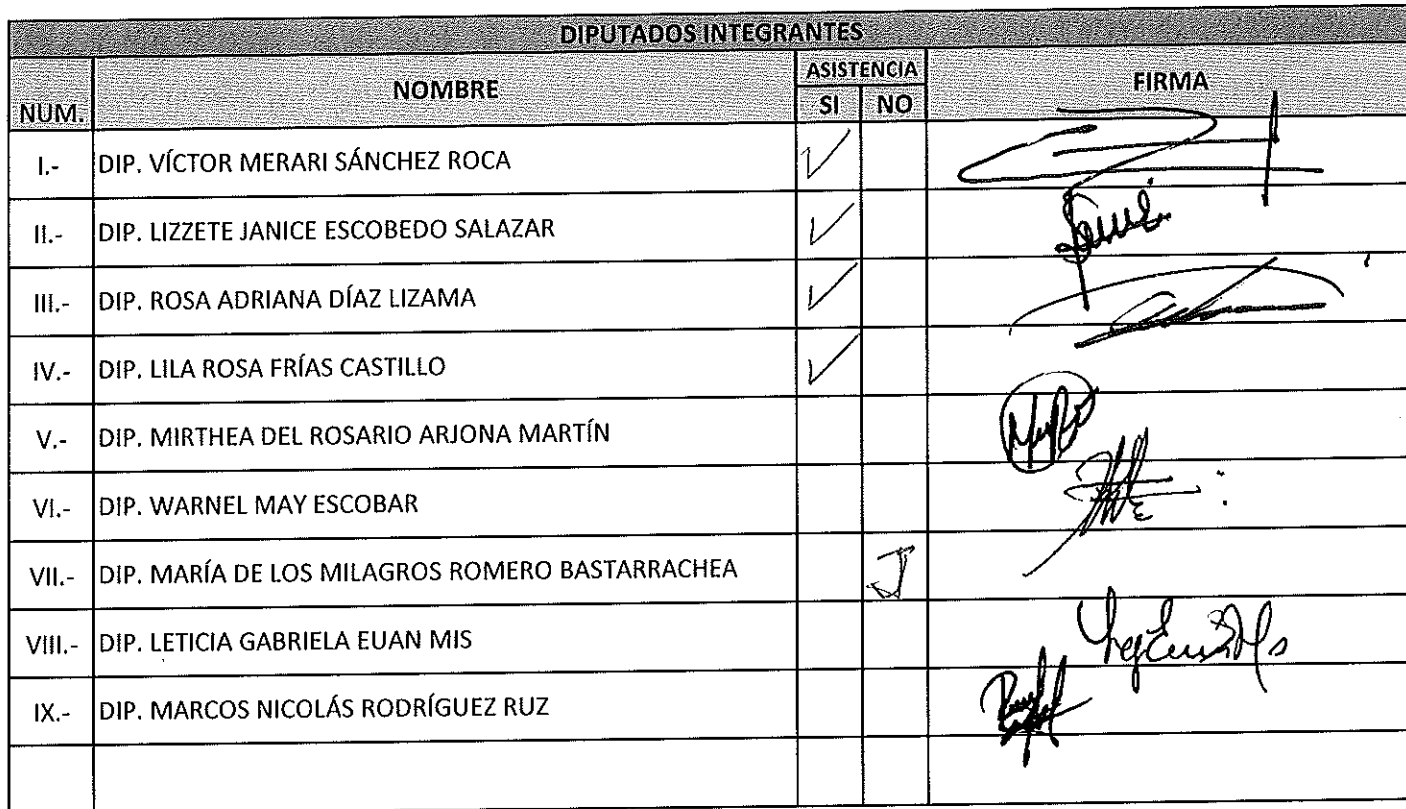 DIPUTADOS INTEGRANTES
NUM. NOMBRE ASISTENCIA FIRMA
SI NO
I.- DIP. VÍCTOR MERARI SÁNCHEZ ROCA
II.- DIP. LIZZETE JANICE ESCOBEDO SALAZAR
III.- DIP. ROSA ADRIANA DÍAZ LIZAMA
IV.- DIP. LILA ROSA FRÍAS CASTILLO
V.- DIP. MIRTHEA DEL ROSARIO ARJONA MARTÍN
VI.- DIP. WARNEL MAY ESCOBAR
VII.- DIP. MARÍA DE LOS MILAGROS ROMERO BASTARRACHEA J
VIII.- DIP. LETICIA GABRIELA EUAN MIS
IX.- DIP. MARCOS NICOLÁS RODRÍGUEZ RUZ